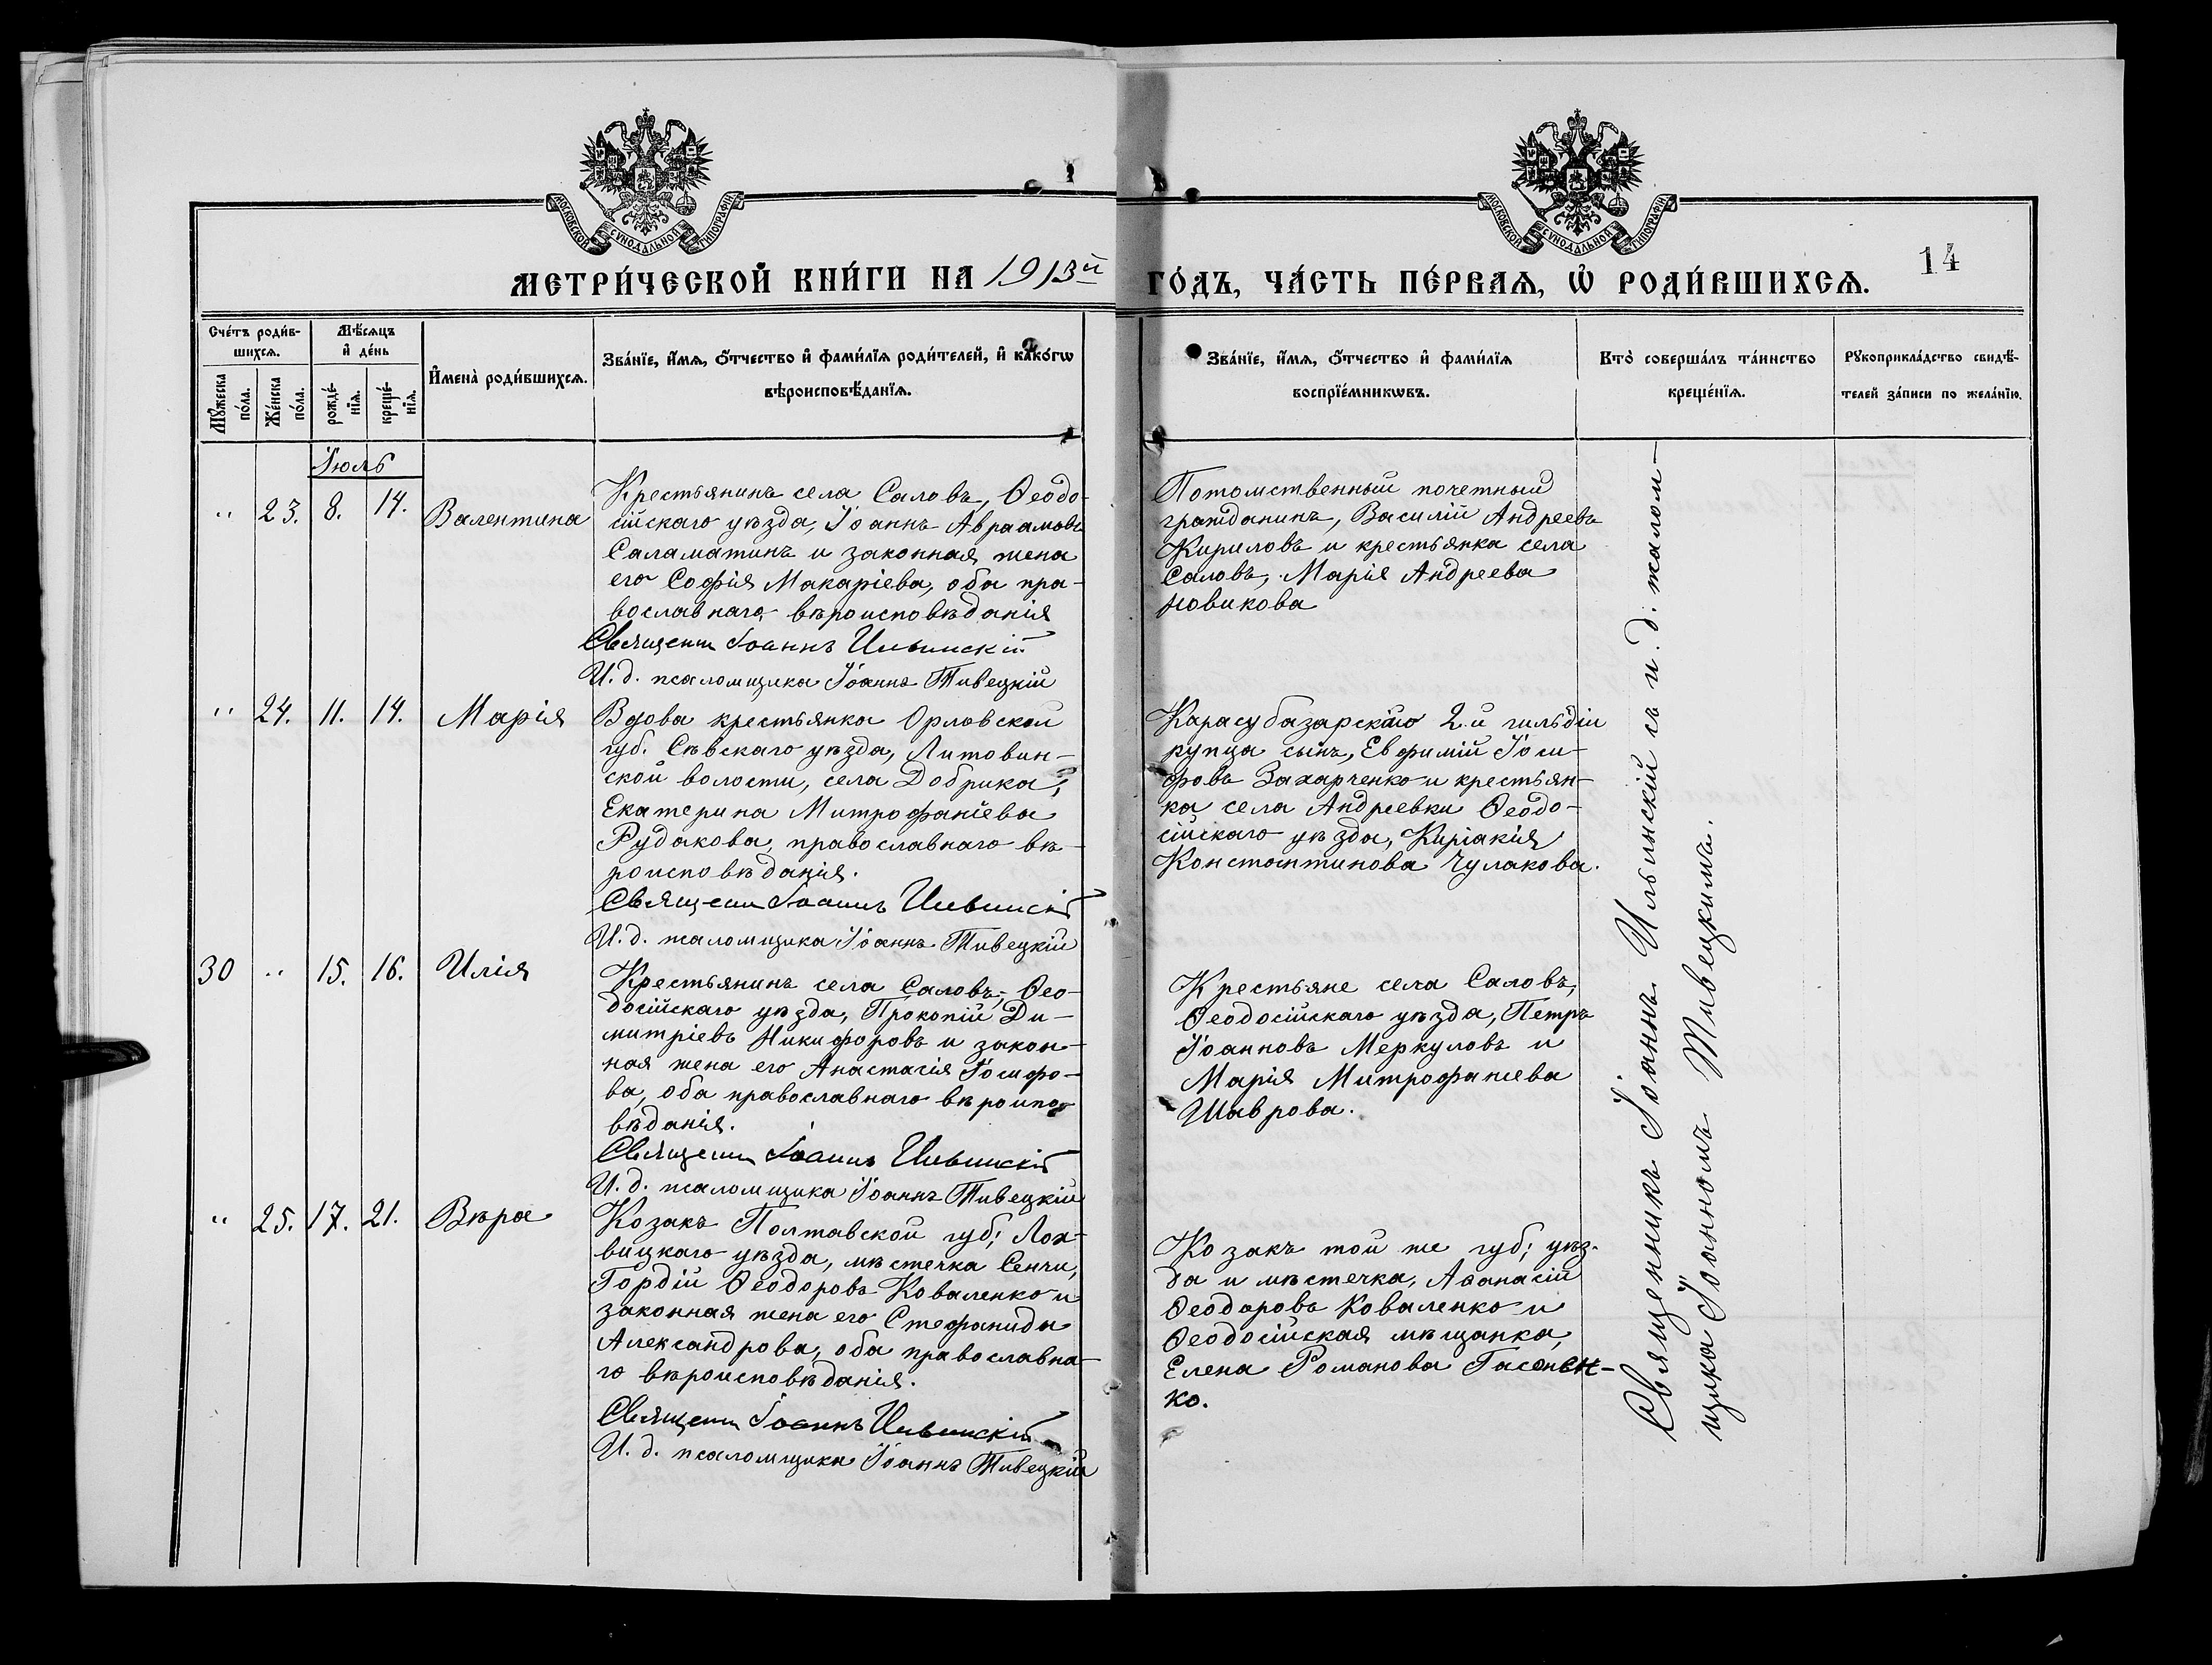 МОСКОВСКОЙ СѴНОДАЛЬНОЙ ТИПОГРАФІИ
МОСКОВСКОЙ СѴНОДАЛЬНОЙ ТИПОГРАФІИ
14
МЕТРИ́ЧЕСКОЙ КНИ́ГИ НА 1913й ГО́ДЪ, ЧА́СТЬ ПЕ́РВАѦ, Ѡ҆ РОДИ́ВШИХСѦ.
Сче́тъ роди́в-
шихсѧ.
Мꙋ́жеска по́ла.
Же́нска по́ла.
Мѣ́сѧцъ
и҆ де́нь
рожде́-нїѧ.
креще́-нїѧ.
И҆мена̀ роди́вшихсѧ.
Зва́нїе, и҆́мѧ, ѻ҆́тчество и҆ фами́лїѧ роди́телей, и҆ како́гѡ
вѣроисповѣ́данїѧ.
Зва́нїе, и҆́мѧ, ѻ҆́тчество и҆ фами́лїѧ
воспрїе́мникѡвъ.
Кто̀ соверша́лъ та́инство
креще́нїѧ.
Рꙋкоприкла́дство свидѣ́-
телей за́писи по жела́нїю.
Іюль
" 23. 8. 14. Валентина
Крестьянинъ села Саловъ, Ѳеодо-
сійскаго уѣзда, Іоаннъ Авраамовъ
Саламатинъ и законная жена
его Софія Макаріева, оба пра-
вославнаго вѣроисповѣданія
Священ Іоаннъ Ильинскій
И. д. псаломщика Іоаннъ Тивецкій
Потомственный почетный
гражданинъ, Василій Андреевъ
Кириловъ и крестьянка села
Саловъ, Марія Андреева
Новикова
" 24. 11. 14. Марія
Вдова крестьянка Орловской
губ. Сѣвскаго уѣзда, Литовин-
ской волости, села Добрика,
Екатерина Митрофаніева
Рудакова, православнаго вѣ-
роисповѣданія.
Священ Іоаннъ Ильинскій
И. д. псаломщика Іоаннъ Тивецкій
Карасубазарскаго 2й гильдіи
купца сынъ, Евфимій Іоси-
фовъ Захарченко и крестьян-
ка села Андреевки Ѳеодо-
сійскаго уѣзда, Киріакія
Константинова Чулакова.
30 " 15. 16. Илія
Крестьянинъ села Саловъ, Ѳео-
досійскаго уѣзда, Прокопій Ди-
митріевъ Никифоровъ и закон-
ная жена его Анастасія Іосифо-
ва, оба православнаго вѣроиспо-
вѣданія.
Священ Іоаннъ Ильинскій
И. д. псаломщика Іоаннъ Тивецкій
Крестьяне села Саловъ,
Ѳеодосійскаго уѣзда, Петръ
Іоанновъ Меркуловъ и
Марія Митрофанева
Шаврова.
" 25. 17. 21. Вѣра
Козакъ Полтавской губ; Лох-
вицкаго уѣзда, мѣстечка Сенчи,
Гордій Ѳеодоровъ Коваленко и
законная жена его Стефанида
Александрова, оба православна-
го вѣроисповѣданія.
Священ Іоаннъ Ильинскій
И. д. псаломщика Іоаннъ Тивецкій
Козакъ той же губ; уѣз-
да и мѣстечка, Аѳанасій
Ѳеодоровъ Коваленко и
Ѳеодосійская мѣщанка,
Елена Романова Гасенен-
ко.
Священникъ Іоаннъ Ильинскій съ и. д. псалом-
щика Іоанномъ Тивецкимъ.